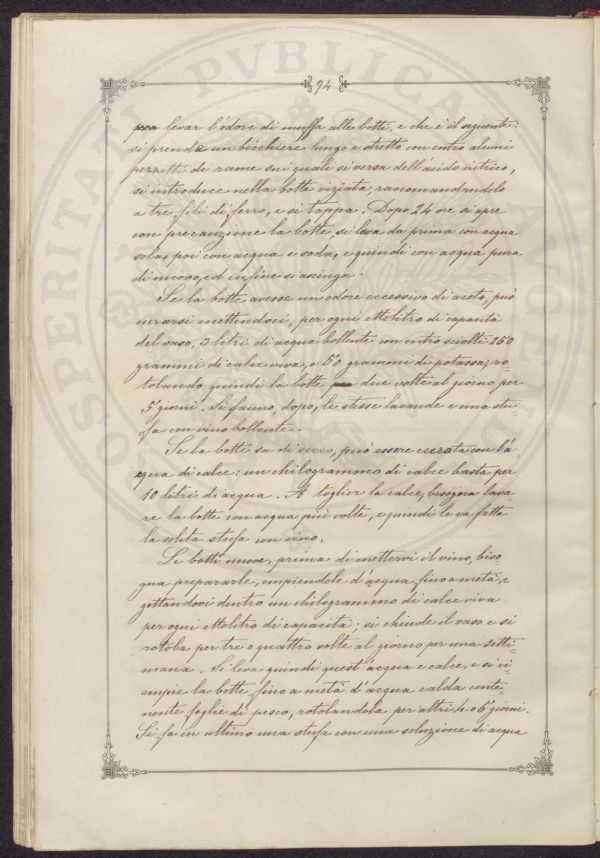 94
levar l'odore di muffa alle botti, e che è il seguente:
si prende un bicchiere lungo e stretto con entro alcuni
pezzetti di rame sui quali si versa dell'acido nitrico,
si introduce nella botte viziata, raccomandandolo
a tre fili di ferro, e si tappa. Dopo 24 ore si apre
con precauzione la botte, si lava da prima con acqua
sola, poi con acqua e soda, e quindi con acqua pura
di nuovo, ed infine si asciuga.
Se la botte avesse un odore eccessivo di aceto, può
curarsi mettendoci, per ogni ettolitro di capacità
del vaso, 3 litri di acqua bollente con entro sciolti 250
grammi di calce viva, e 50 grammi di potassa; ro-
tolando quindi la botte due volte al giorno per
5 giorni. Si fanno, dopo, le stesse lavande e una stu-
fa con vino bollente.
Se la botte sa di secco, può essere curata con l'a-
cqua di calce: un chilogrammo di calce basta per
10 litri di acqua. A toglier la calce, bisogna lava-
re la botte con acqua più volte, e quindi le va fatta
la solita stufa con vino.
Le botti nuove, prima di mettervi il vino, biso-
gna prepararle, empiendole d'acqua, fino a metà, e
gittandovi dentro un chilogrammo di calce viva
per ogni ettolitro di capacità; si chiude il vaso e si
rotola per tre o quattro volte al giorno per una setti-
mana. Si leva quindi quest'acqua e calce, e si ri-
empie la botte, fino a metà d'acqua calda conte-
nente foglie di pesco, rotolandola per altri 4 o 6 giorni.
Si fa in ultimo una stufa con una soluzione di acqua
PROSPERITATI PVBLICAE AVGENDAE